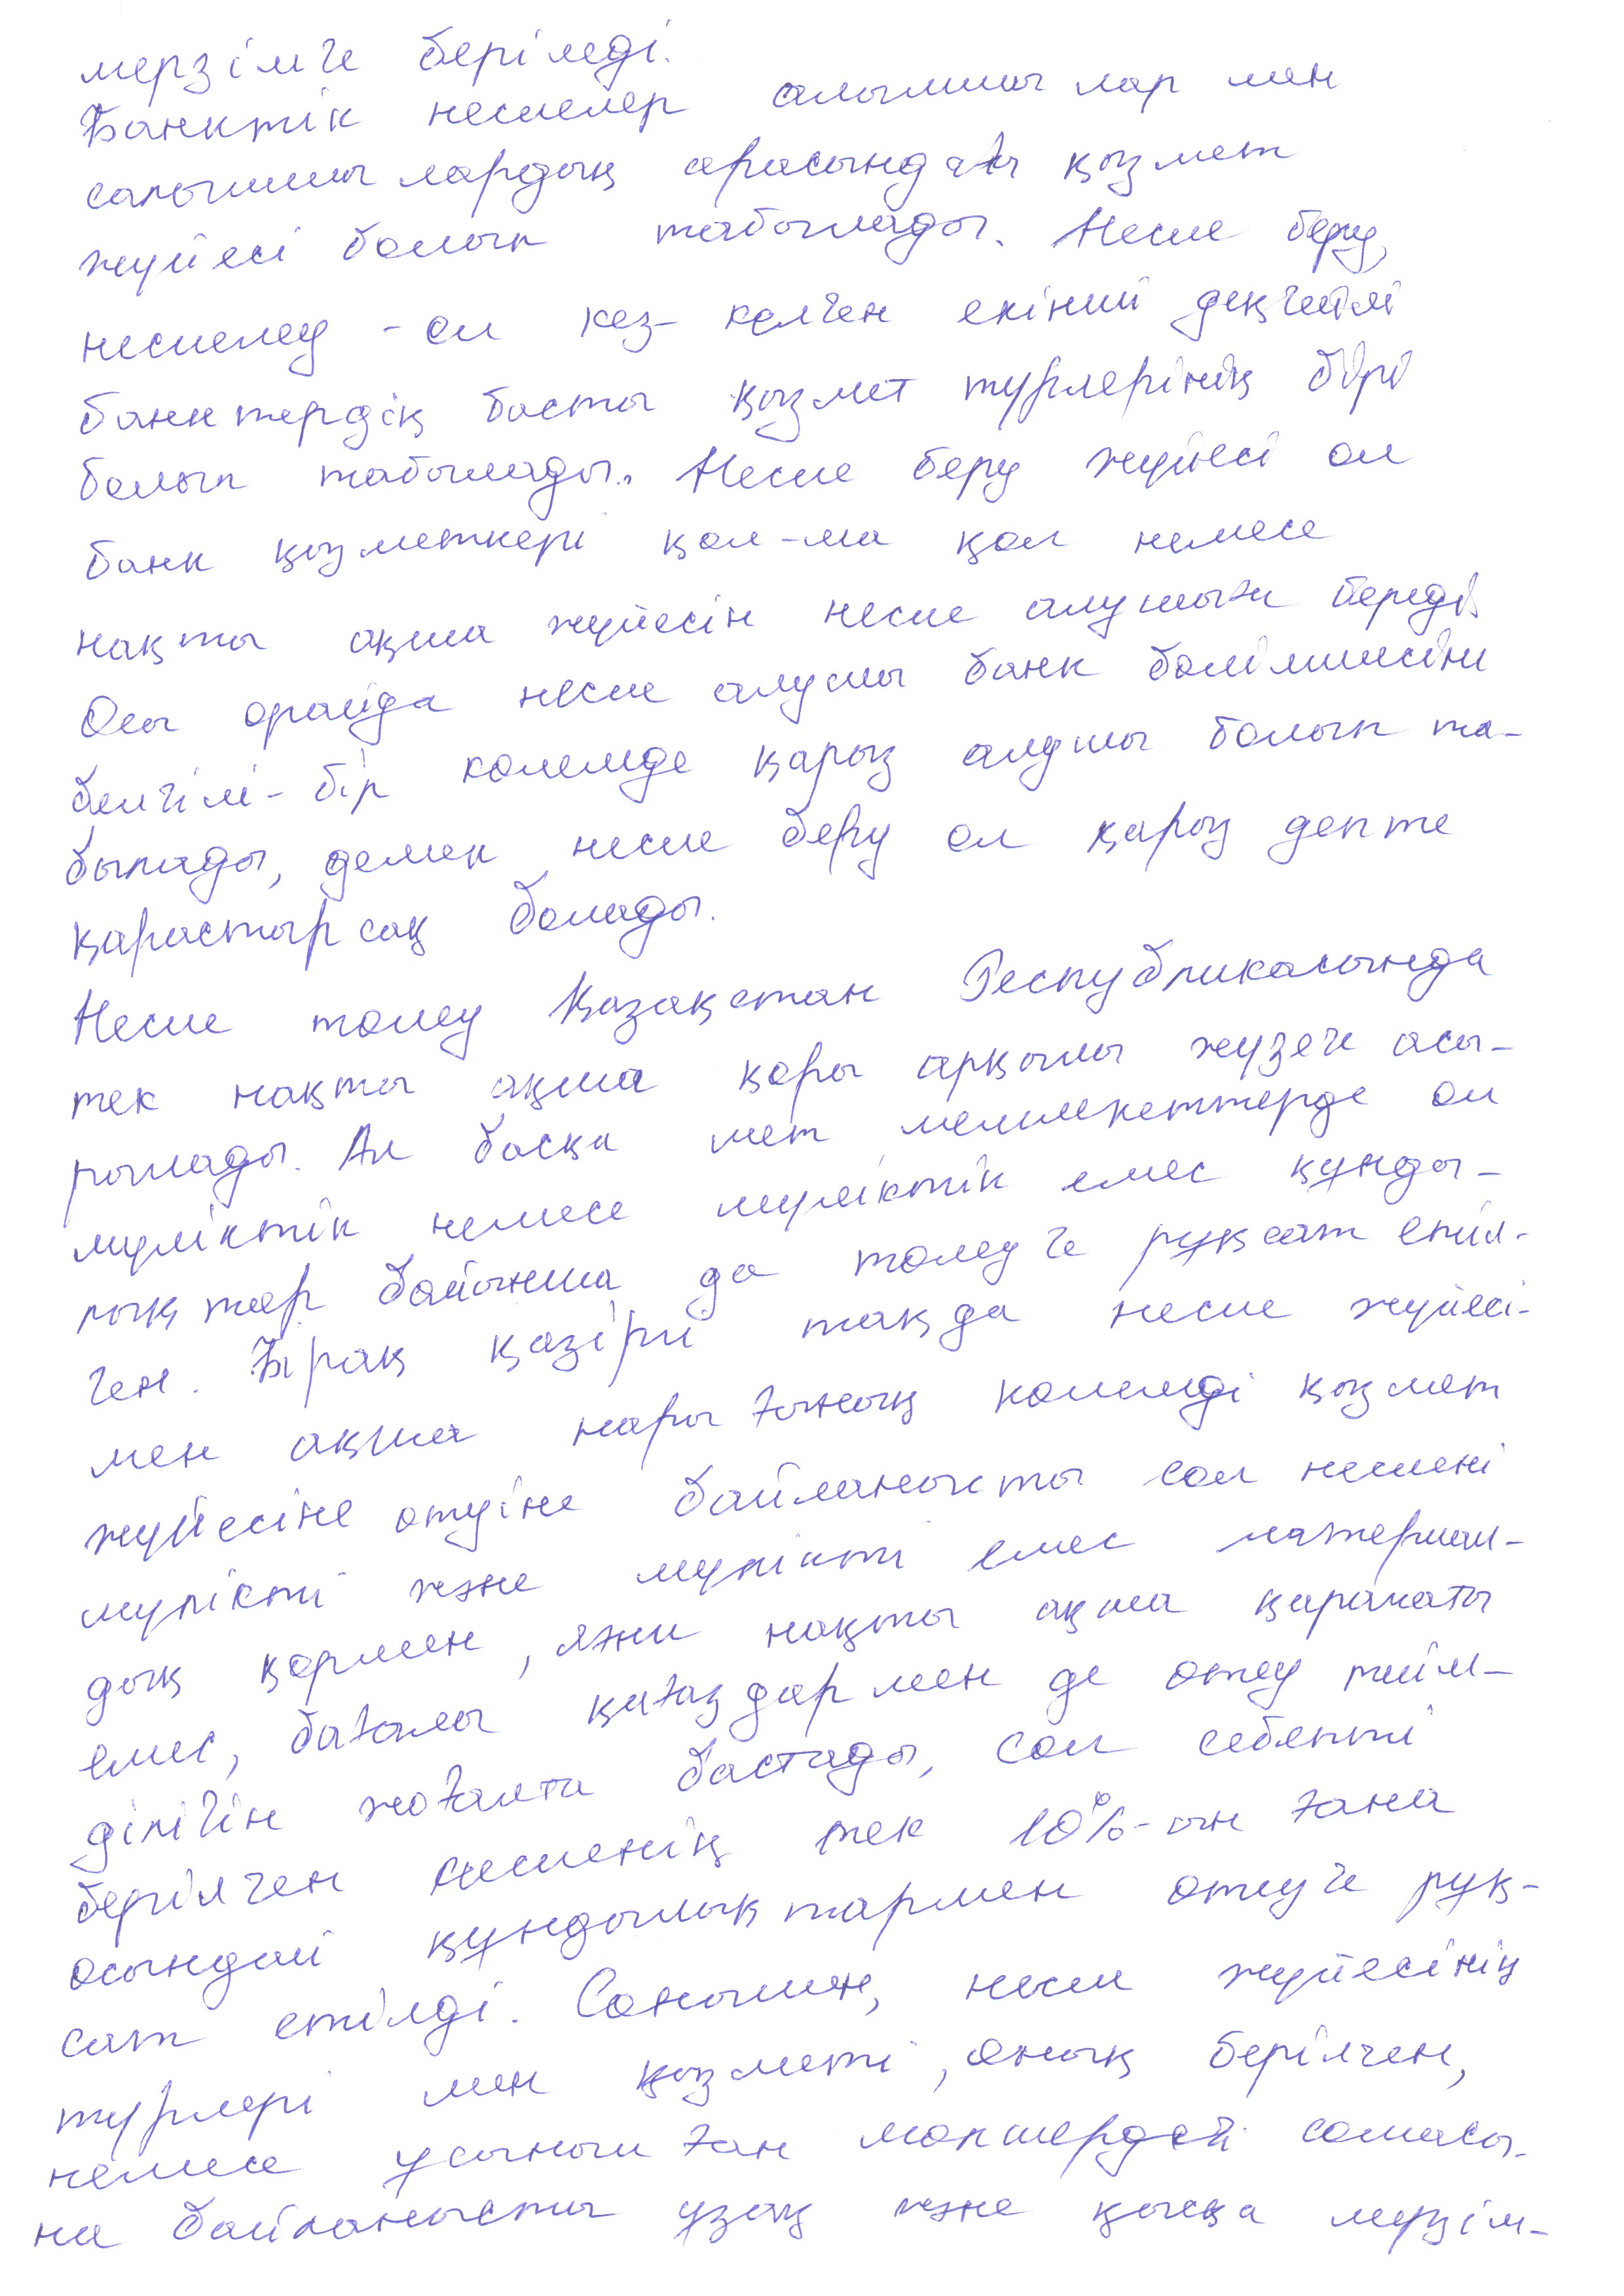 мерзімге беріледі.
Банктік несиелер алымшылар мен
салымшылардың арасындағы қызмет
жүйесі болып табылады. Несие беру,
несиелеу - ол кез-келген екінші деңгейлі
банктердің басты қызмет түрлерінің бірі
болып табылады. Несие беру жүйесі ол
банк қызметкері қол-ма қол немесе
нақты ақша жүйесін несие алушыға береді.
Осы орайда несие алушы банк бөлімшесіне
белгілі-бір көлемде қарыз алушы болып та-
былады, демек несие беру ол қарыз депте
қарастырсақ болады.
Несие төлеу Қазақстан Республикасында
тек нақты ақша қоры арқылы жүзеге асы-
рылады. Ал басқа шет мемлекеттерде ол
мүліктік немесе мүліктік емес құнды-
лықтар бойынша да төлеуге рұқсат етіл-
ген. Бірақ қазіргі таңда несие жүйесі-
мен ақша нарығының көлемді қызмет
жүйесіне өтуіне байланысты сол несиені
мүлікті және мүлікті емес материал-
дық қормен, яғни нақты ақша қаражаты
емес, бағалы қағаздармен де өтеу тиім-
ділігін жоғалта бастады, сол себепті
берілген несиенің тек 10%-ын ғана
осындай құндылықтармен өтеуге рұқ-
сат етілді. Сонымен, несие жүйесінің
түрлері мен қызметі, оның берілген,
немесе ұсынылған мөлшердей сомасы-
на байланысты ұзақ және қысқа мерзім-